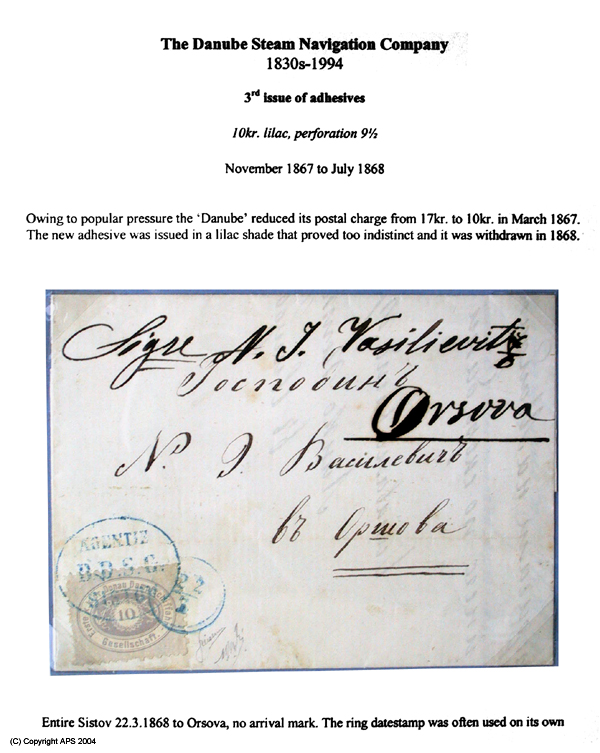 The Danube Steam Navigation Company
1830s-1994
3rd issue of adhesives
10kr. lilac, perforation 9½
November 1867 to July 1868
Owing to popular pressure the 'Danube' reduced its postal charge from 17kr. to 10kr. in March 1867.
The new adhesive was issued in a lilac shade that proved too indistinct and it was withdrawn in 1868.
Sigre N. J. Vasilievitz
Господинъ
Orsova
N. J. Василевичъ
въ Оршова
AGENTIE
D.D.S.G.
SISTOV
22
3
Donau Dampfschiffahrt
10
Gesellschaft.
Entire Sistov 22.3.1868 to Orsova, no arrival mark. The ring datestamp was often used on its own
(C) Copyright APS 2004